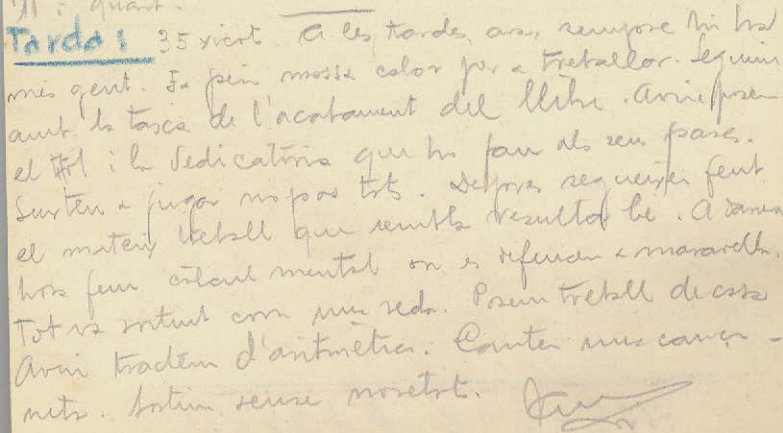 quart.
Tarda: 35 xicots A les tardes, ara, sempre hi ha
més gent. Fa massa calor per a treballar. Seguim
amb la tasca de l'acabament del llibre. Avui posen
el títol i la dedicatòria que ho fan als seus pares.
Surten a jugar no pas tots. Després segueixen fent
el mateix treball que sembla resultar bé. A darrera
hora fem càlcul mental on es defensen a meravella.
Tot va sortint com una seda. Posem treball de casa
Avui tractem d'aritmètica. Canten una canço-
neta. Sortim sense novetat.